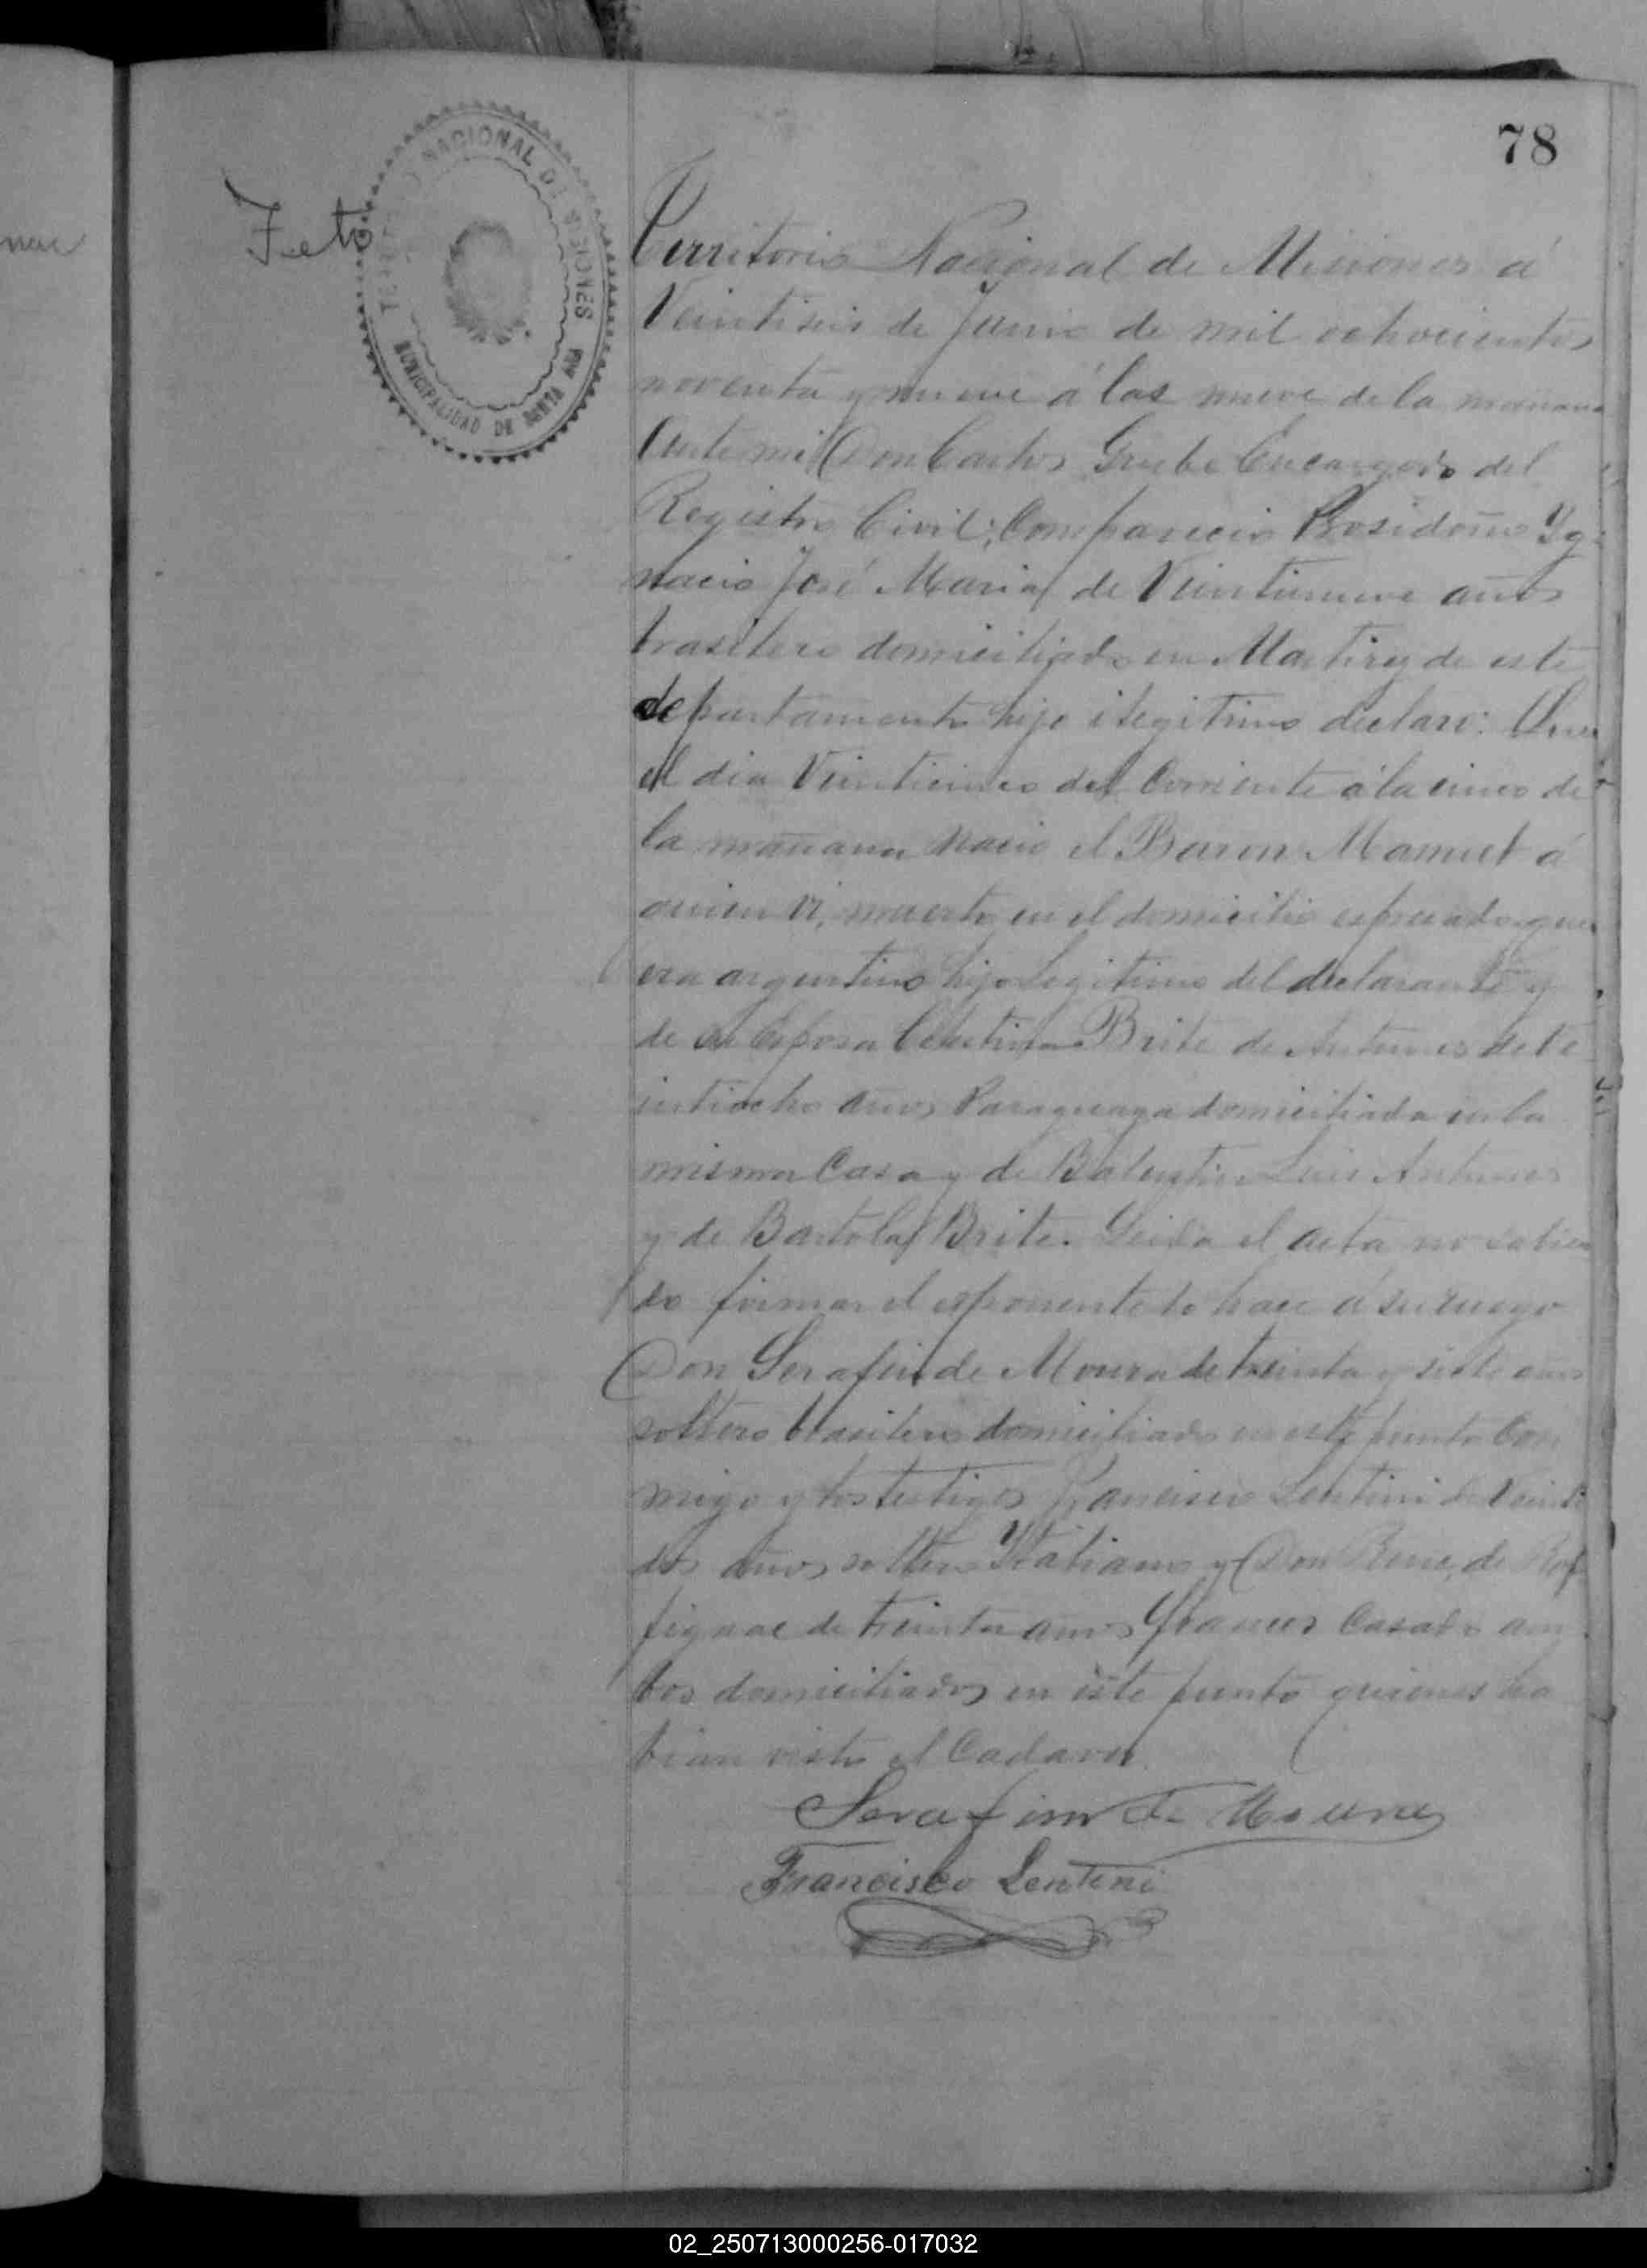 78
Feto
TERRITORIO NACIONAL DE MISIONES
MUNICIPALIDAD DE SANTA ANA
Territorio Nacional de Misiones á
Veintiseis de Junio de mil ochocientos
noventa y nueve á las nueve de la mañana
Ante mi Don Carlos Grube Encargado del
Registro Civil; Comparecio Yg
nacio José Maria de Veintinueve años
brasilero domiciliado en Martires de este
departamento hijo ilegitimo declaro: Que
el dia Veinticinco del Corriente á la cinco de
la mañana nacio el Baron Manuel á
quien vi, muerto en el domicilio espresado que
era argentino hijo legitimo del declarante y
de su Esposa Celestina Brite de Antunes de Ve
intiocho años Paraguaya domiciliada en la
misma Casa y de Balentin Luis Antunes
y de Bartola Brite. Leida el acta no sabien
do firmar el esponente lo hace á su ruego
Don Serafin de Moura de treinta y siete años
soltero brasilero domiciliado en este punto Con
migo y los testigos Francisco Lentini de Veinti
dos años soltero Ytaliano y Don Rene de Rof
fignac de treinta años frances Casado am
bos domiciliados en este punto quienes ha
bian visto el Cadaver.
Serafim de Moura
Francisco Lentini
02_250713000256-017032